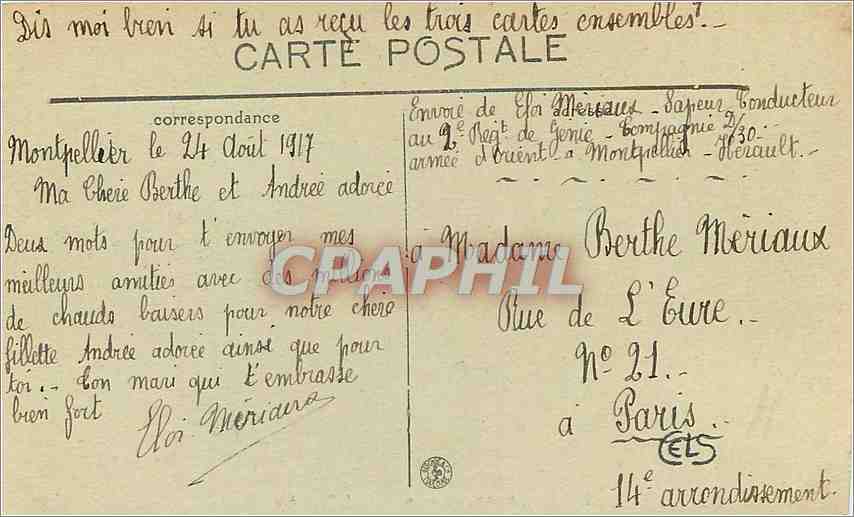 Dis moi bien si tu as reçu les trois cartes ensembles? -
CARTE POSTALE
correspondance
Montpellier le 24 Août 1917
Ma Chère Berthe et Andrée adorée
Deux mots pour t'envoyer mes
meilleurs amitiés avec des millions
de chauds baisers pour notre chère
fillette Andrée adorée ainsi que pour
toi. - Ton mari qui t'embrasse
bien fort
Eloi Mériaux
adresse
Envoie de Eloi Mériaux - Sapeur Conducteur
au 2e Regt de Génie - Compagnie D/30 -
armée d'Orient - à Montpellier - Hérault. -
à Madame Berthe Mériaux
Rue de L'Eure. -
No 21. -
à Paris. -
14e arrondissement.
CELS
CPAPHIL